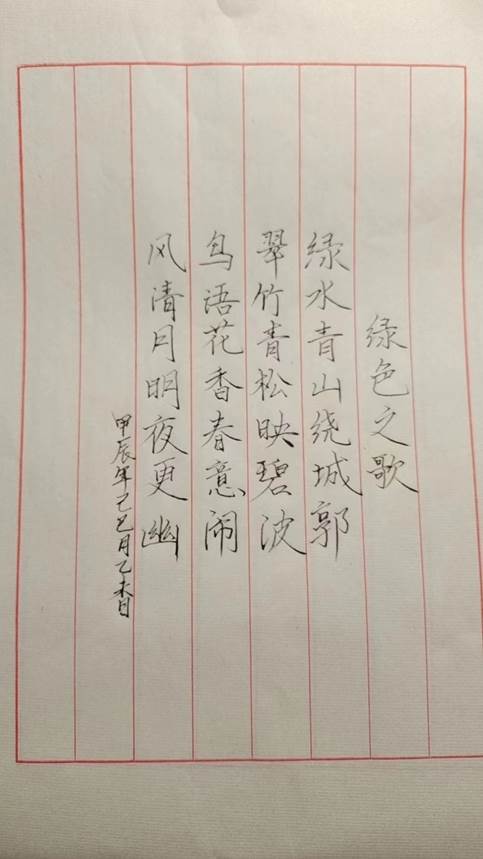 绿色之歌
绿水青山绕城郭
翠竹青松映碧波
鸟语花香春意闹
风清月明夜更幽
甲辰年己巳月乙未日